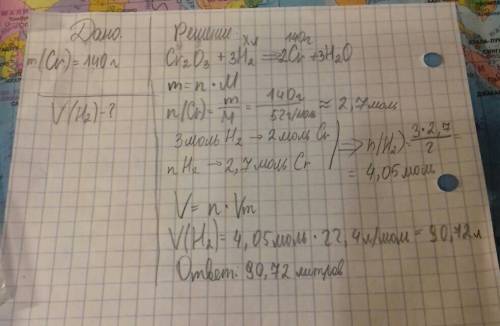 Дано:
m(Cr)=140г
V(H₂)-?
Решение
хл 140г
Cr₂O₃ + 3H₂ ⟹ 2Cr + 3H₂O
m = n · M
n(Cr) = m/M = 140г/52г/моль ≈ 2,7моль
3 моль H₂ → 2 моль Cr
n H₂ → 2,7 моль Cr
⟹ n(H₂) = 3·2,7/2 =
= 4,05 моль
V = n · Vm
V(H₂) = 4,05 моль · 22,4 л/моль = 90,72 л
Ответ: 90,72 литров